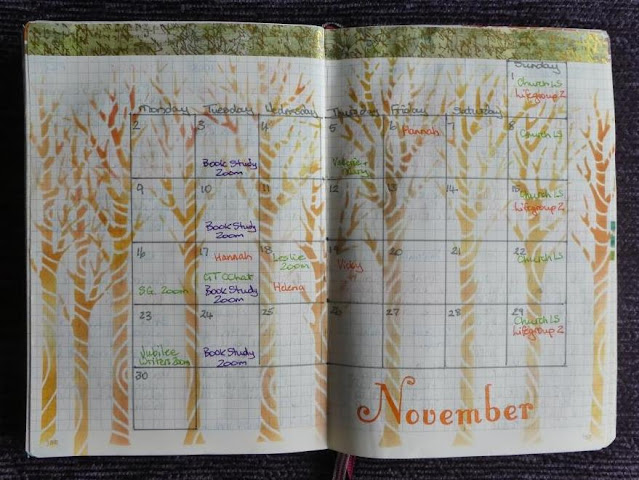 Sunday
1
Church LS
Lifegroup Z
Monday
Tuesday
Wednesday
Thursday
Friday
Saturday
2
3
Book Study
Zoom
4
5
6
Hannah
7
8
Church LS
9
10
Book Study
Zoom
11
12
13
14
15
Church LS
Lifegroup Z
16
S.G. Zoom
17
Hannah
GT CChat
Book Study
Zoom
18
Leslie
Zoom
Helena
19
Vicky
20
21
22
Church LS
23
Jubilee
Writers Zoom
24
Book Study
Zoom
25
26
27
28
29
Church LS
Lifegroup Z
30
November